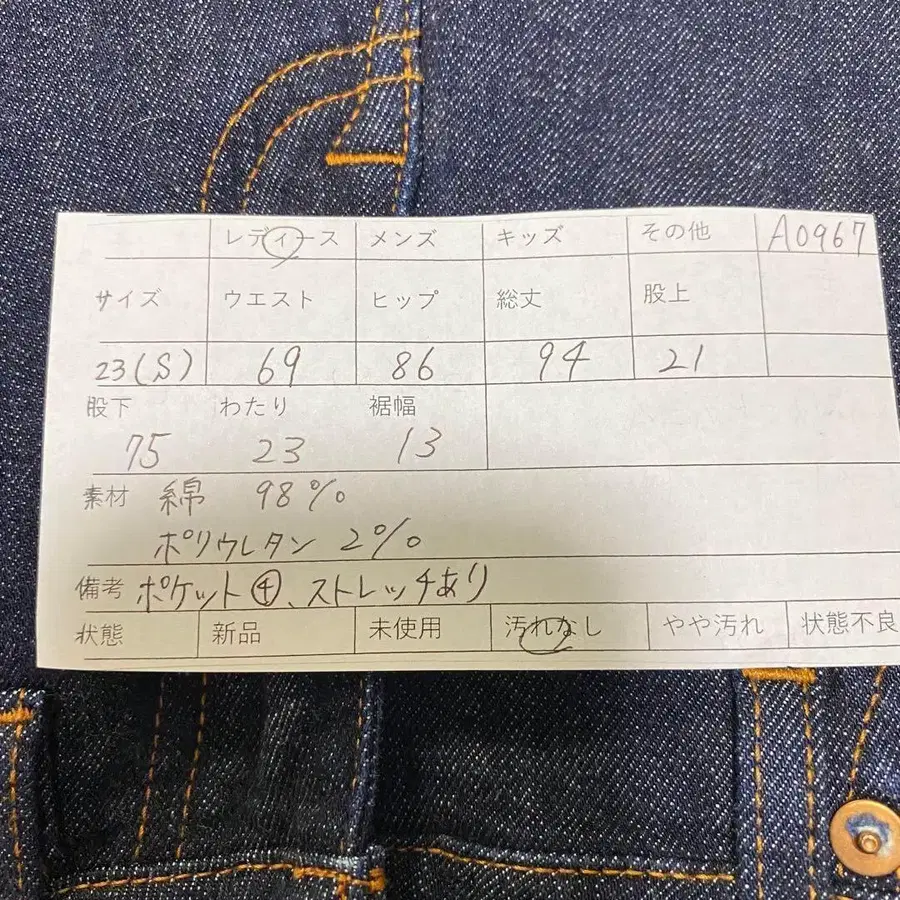 レディース メンズ キッズ その他 A0967
サイズ ウエスト ヒップ 総丈 股上
23(S) 69 86 94 21
股下 わたり 裾幅
75 23 13
素材 綿 98%
ポリウレタン 2%
備考 ポケット④、ストレッチあり
状態 新品 未使用 汚れなし やや汚れ 状態不良